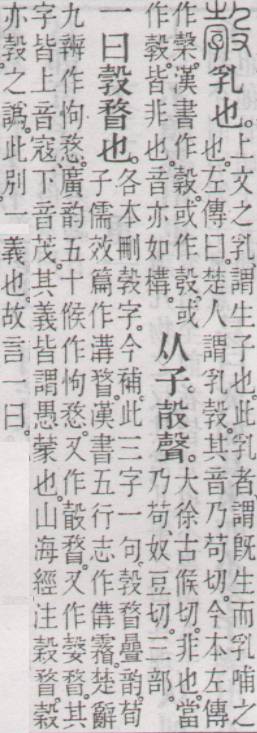 㝅乳也。上文之乳。謂生子也。此乳者。謂旣生而乳哺之也。左傳曰。楚人謂乳㝅。其音乃苟切。今本左傳
作穀。漢書作㝅。或作彀。或作㝅。皆非也。音亦如構。从子。㱿聲。大徐古候切。非也。當乃苟、奴豆切。三部。
一曰㝅瞀也。各本刪㝅字。今補。此三字一句。㝅瞀疊韵。荀子儒效篇作溝瞀。漢書五行志作傋霿。楚辭
九辯作怐愗。廣韵五十候作怐愗。又作㱿瞀。又作婺瞀。其字皆上音寇。下音茂。其義皆謂愚蒙也。山海經注穀瞀。穀
亦㝅之譌。此別一義也。故言一曰。